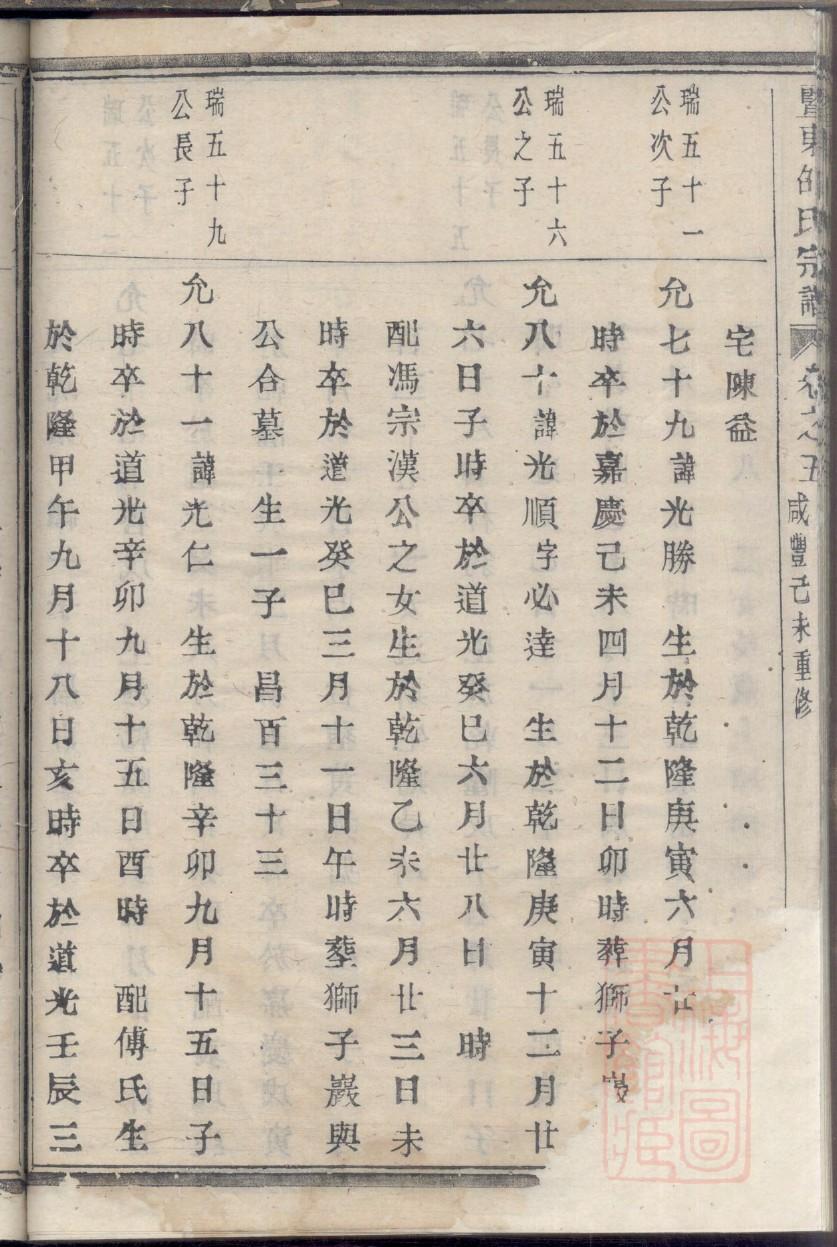 暨東邵氏宗譜 卷之五 咸豐己未重修
宅陳益
瑞五十一
公次子
允七十九諱光勝 生於乾隆庚寅六月廿
時卒於嘉慶己未四月十二日卯時葬獅子巖
瑞五十六
公之子
允八十諱光順字必達一 生於乾隆庚寅十二月廿
六日子時卒於道光癸巳六月廿八日 時
配馮宗漢公之女生於乾隆乙未六月廿三日未
時卒於道光癸巳三月十一日午時塟獅子巖與
公合墓 生一子 昌百三十三
瑞五十九
公長子
允八十一諱光仁 生於乾隆辛卯九月十五日子
時卒於道光辛卯九月十五日酉時 配傅氏生
於乾隆甲午九月十八日亥時卒於道光壬辰三
上海圖
書館藏